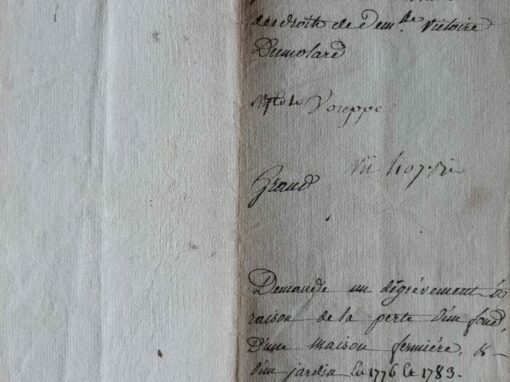 des droits de dem.lle Victoire
Dumolard
Voreppe
Grand
Demande un dégrévement
raison de la perte d'un fond,
D'une maison fermiére, &
d'un jardin 1776 1783.